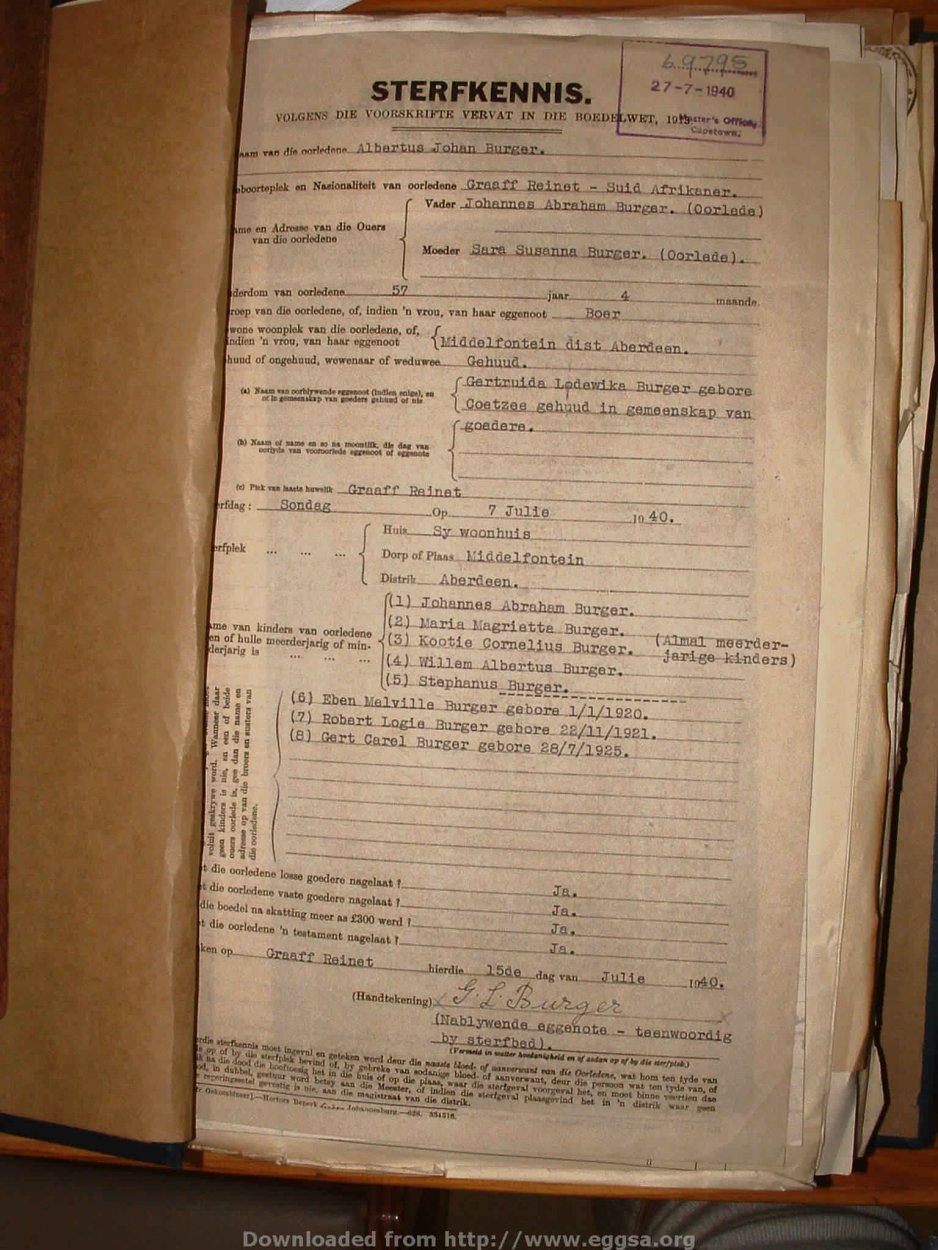 69795
27-7-1940
Master's Office,
Capetown.
STERFKENNIS.
VOLGENS DIE VOORSKRIFTE VERVAT IN DIE BOEDELWET,
van die oorledene Albertus Johan Burger.
boorteplek en Nasionaliteit van oorledene Graaff Reinet - Suid Afrikaner.
Vader Johannes Abraham Burger. (Oorlede)
me en Adresse van die Ouers
van die oorledene
Moeder Sara Susanna Burger. (Oorlede).
derdom van oorledene 57 jaar 4 maande.
roep van die oorledene, of, indien 'n vrou, van haar eggenoot Boer
wone woonplek van die oorledene, of,
indien 'n vrou, van haar eggenoot Middelfontein dist Aberdeen.
huud of ongehuud, wewenaar of weduwee Gehuud.
(a) Naam van oorblywende eggenoot (indien enige), en
of in gemeenskap van goedere gehuud of nie
Gertruida Lodewika Burger gebore
Coetzee gehuud in gemeenskap van
goedere.
(b) Naam of name en so na moontlik, die dag van
oorlyde van vooroorlede eggenoot of eggenote
(c) Plek van laaste huwelik Graaff Reinet
rfdag: Sondag Op 7 Julie 1940.
Huis Sy woonhuis
erfplek ... ... ...
Dorp of Plaas Middelfontein
Distrik Aberdeen.
(1) Johannes Abraham Burger.
(2) Maria Magrietta Burger.
(3) Kootie Cornelius Burger.
(4) Willem Albertus Burger.
(5) Stephanus Burger.
(Almal meerder-
jarige kinders)
ame van kinders van oorledene
en of hulle meerderjarig of min-
derjarig is ... ... ...
(6) Eben Melville Burger gebore 1/1/1920.
(7) Robert Logie Burger gebore 22/11/1921.
(8) Gert Carel Burger gebore 28/7/1925.
voluit geskrywe word. Wanneer daar
geen kinders is nie, en een of beide
ouers oorlede is, gee dan die name en
adresse op van die broers en susters van
die oorledene.
t die oorledene losse goedere nagelaat? Ja.
t die oorledene vaste goedere nagelaat? Ja.
die boedel na skatting meer as £300 werd? Ja.
t die oorledene 'n testament nagelaat? Ja.
ken op Graaff Reinet hierdie 15de dag van Julie 1940.
(Handtekening) x G. L. Burger x
(Nablywende eggenote - teenwoordig
by sterfbed).
(Vermeld in watter hoedanigheid en of aldan op of by die sterfplek.)
rdie sterfkennis moet ingevul en geteken word deur die naaste bloed- of aanverwant van die Oorledene, wat hom ten tyde van
op of by die sterfplek bevind of, by gebreke van sodanige bloed- of aanverwant, deur die persoon wat ten tyde van, of
k na die dood die hooftoesig het in die huis of op die plaas, waar die sterfgeval voorgeval het, en moet binne veertien dae
od, in dubbel, gestuur word aan die Meester, of indien die sterfgeval plaasgevind het in 'n distrik waar geen
regeringssetel gevestig is nie, aan die magistraat van die distrik.
Johannesburg.
Downloaded from http://www.eggsa.org